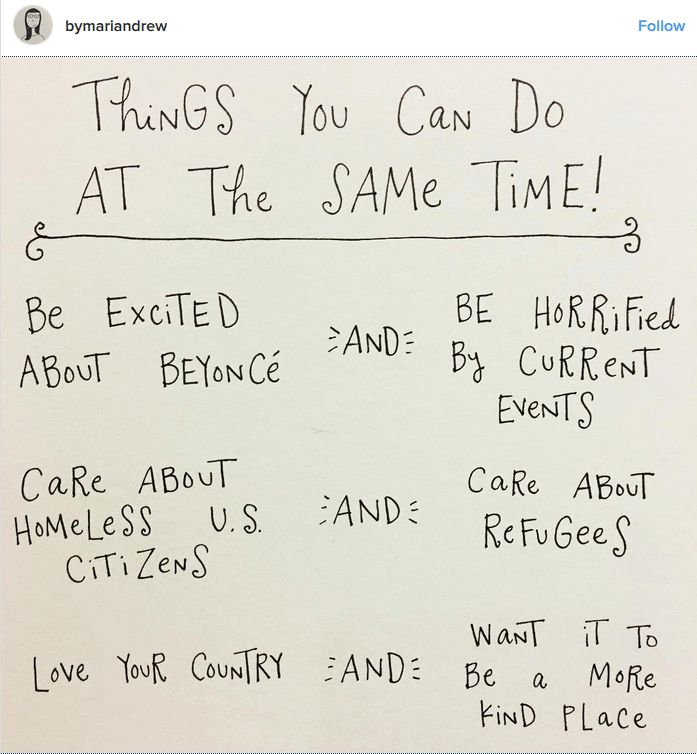 bymariandrew
Follow
THiNGS YOU CAN DO
AT The SAMe TiME!
Be ExciTED
ABOUT BEYONCé
AND
BE HORRiFied
By CURReNT
EVeNTS
CaRe ABOUT
HOMeLeSS U.S.
CiTiZeNS
AND
CaRe ABOUT
ReFuGeeS
Love YOUR COUNTRY
AND
WaNT iT To
Be a MoRe
KiND PLace